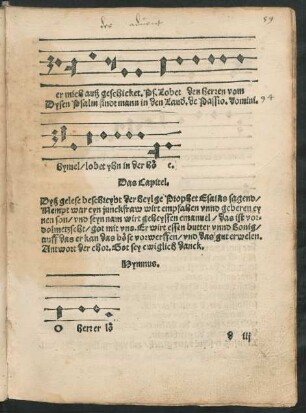 des advents
89
er mich auß geschicket. Ps. Lobet den herren vom
Dysen Psalm sindt mann in den Laud. de Passio. domini.
94
hymel / lobet yhn in der hö e.
Das Capitel.
Dyß gelese beschreybt der heylge Prophet Esaias sagend /
Nempt war eyn junckfraw wirt empfahen vnnd geberen ey
nen son / vnd seyn nam wirt geheyssen emanuel / das ist vor
dolmetzscht / got mit vns. Er wirt essen butter vnnd honig
vff das er kan das böse vorwerffen / vnd das gut erwelen.
Antwort der chor. Got sey ewiglich danck.
Hymnus.
O herre lö
iij